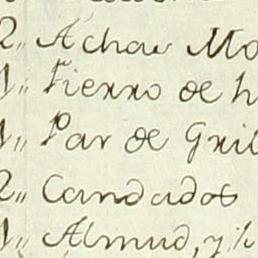 2,, Achas Mo
1,, Fierro de h
1,, Par de Gril
2,, Candados
1,, Almud, y